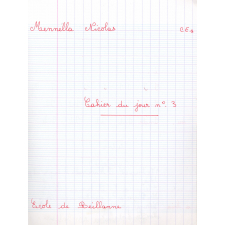 Mennella Nicolas
Cahier du jour n° 3
École de Breillanne